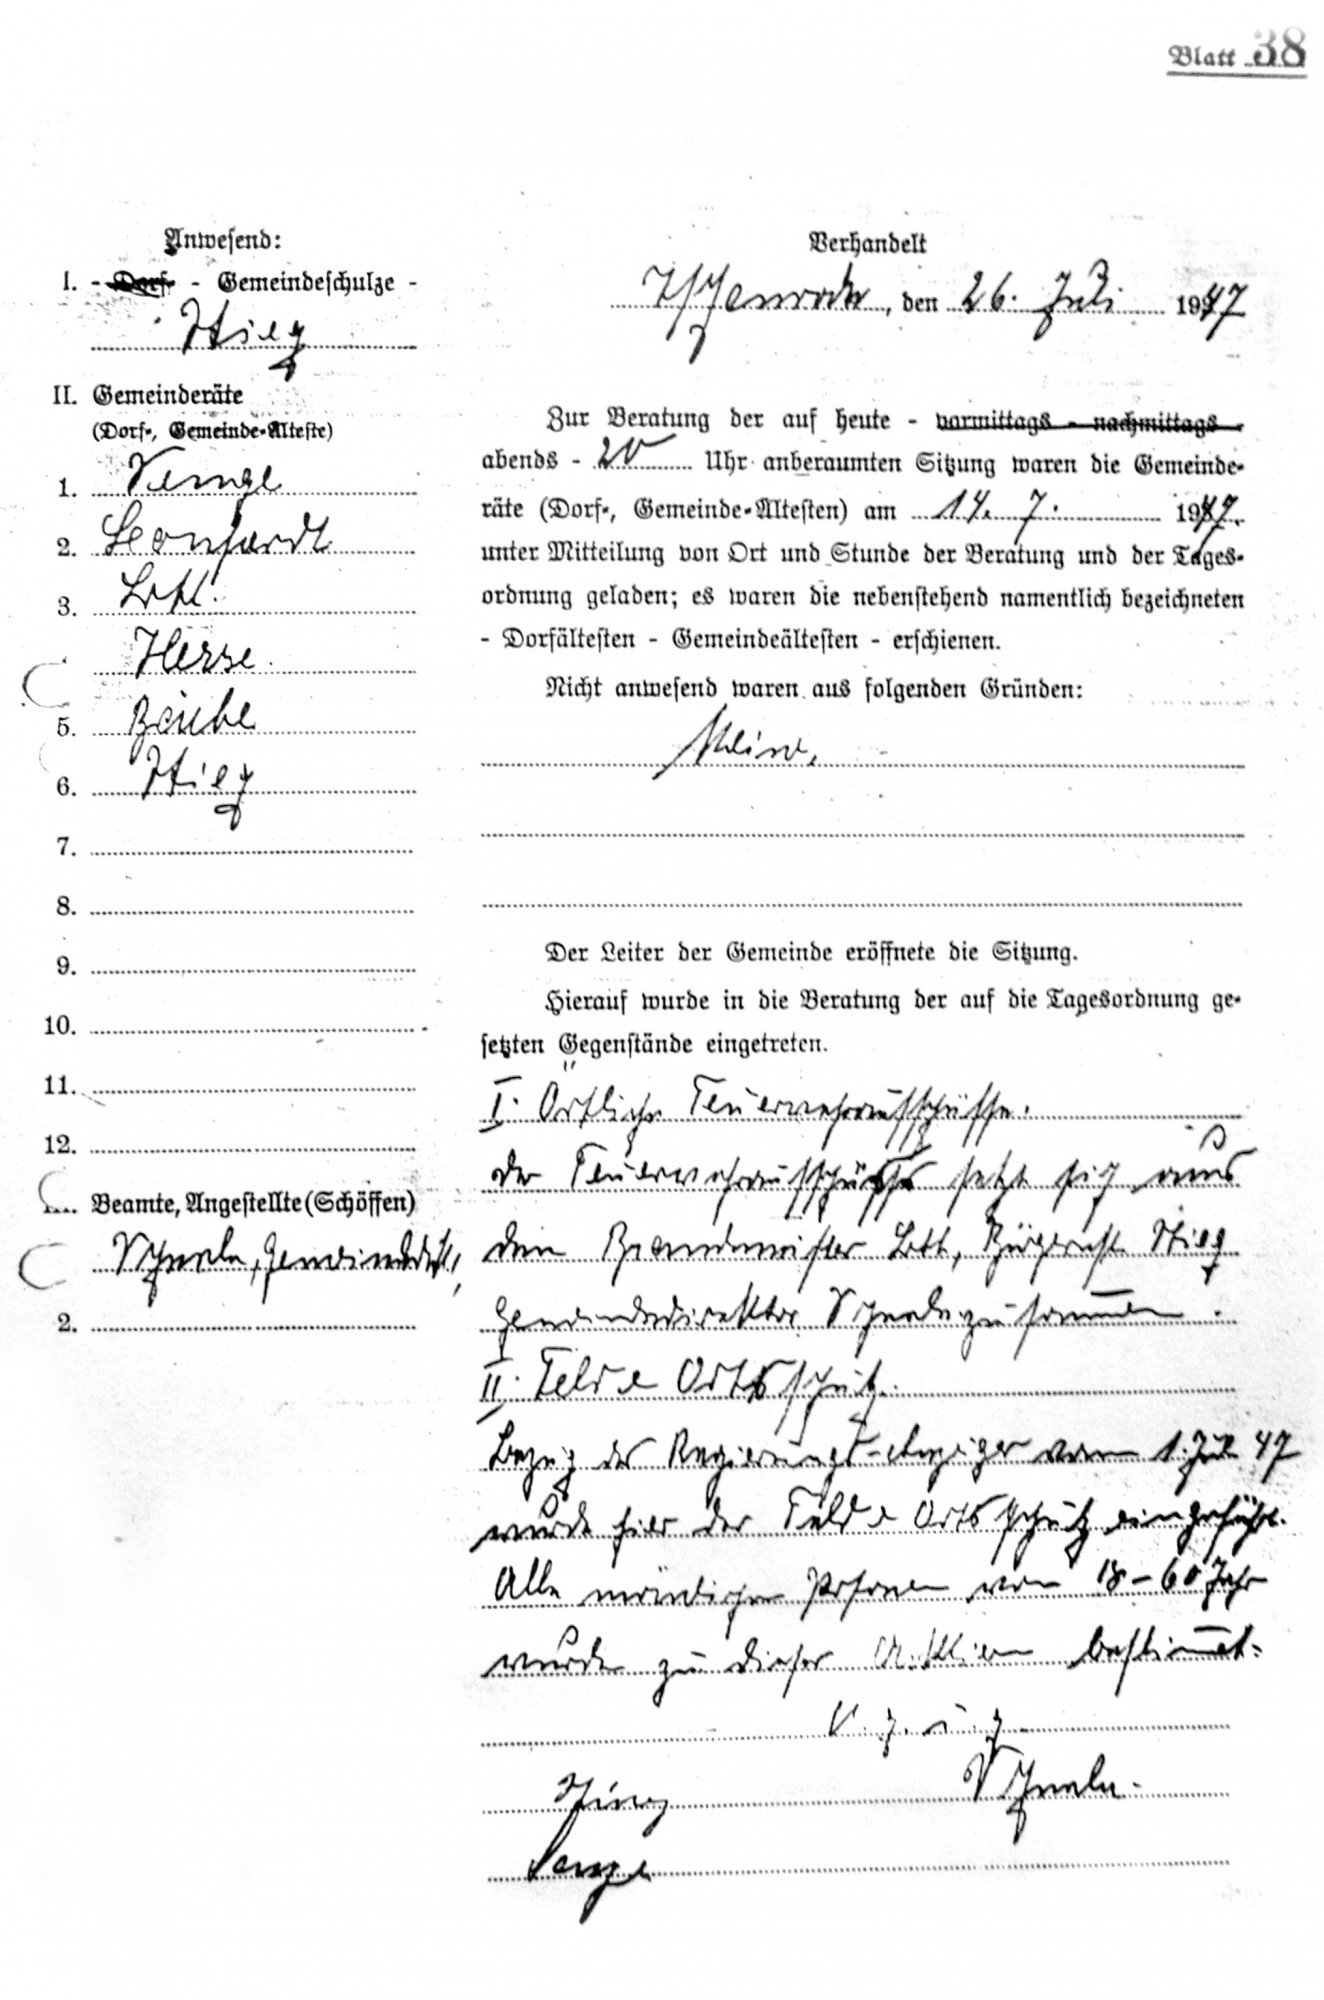 Blatt 38
Anwesend:
I. - Dorf - Gemeindeschulze -
Stieg
II. Gemeinderäte
(Dorf-, Gemeinde-Älteste)
1.
2. Leonhardt
3. Lott.
Hesse.
5. Beube
6. Stieg
7.
8.
9.
10.
11.
12.
Beamte, Angestellte (Schöffen)
2.
Verhandelt
Ischenrode, den 26. Juli 1947
Zur Beratung der auf heute - vormittags - nachmittags -
abends - 20 Uhr anberaumten Sitzung waren die Gemeinde-
räte (Dorf-, Gemeinde-Ältesten) am 14. 7. 1947.
unter Mitteilung von Ort und Stunde der Beratung und der Tages-
ordnung geladen; es waren die nebenstehend namentlich bezeichneten
- Dorfältesten - Gemeindeältesten - erschienen.
Nicht anwesend waren aus folgenden Gründen:
Der Leiter der Gemeinde eröffnete die Sitzung.
Hierauf wurde in die Beratung der auf die Tagesordnung ge-
setzten Gegenstände eingetreten.
I. Örtliche Feuerwehrausschüsse.
der Feuerwehrausschuss setzt sich aus
dem Brandmeister Lott, Bürgermst. Stieg
Gemeindedirektor zusammen.
II. Feld u Ortsschutz.
Bezug des Regierungs-Anzeiger vom 1. Juli 47
wurde hier der Feld u Ortsschutz eingeführt.
Alle männlichen Personen von 18-60 Jahr
wurde zu dieser Aktion bestimmt.
V. g. u. g.
Stieg